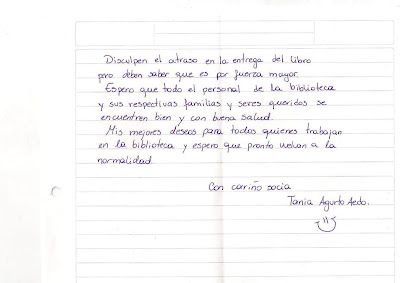 Disculpen el atraso en la entrega del libro
pero deben saber que es por fuerza mayor.
Espero que todo el personal de la biblioteca
y sus respectivas familias y seres queridos se
encuentren bien y con buena salud.
Mis mejores deseos para todos quienes trabajan
en la biblioteca y espero que pronto vuelvan a la
normalidad.
Con cariño socia
Tania Agurto Aedo.